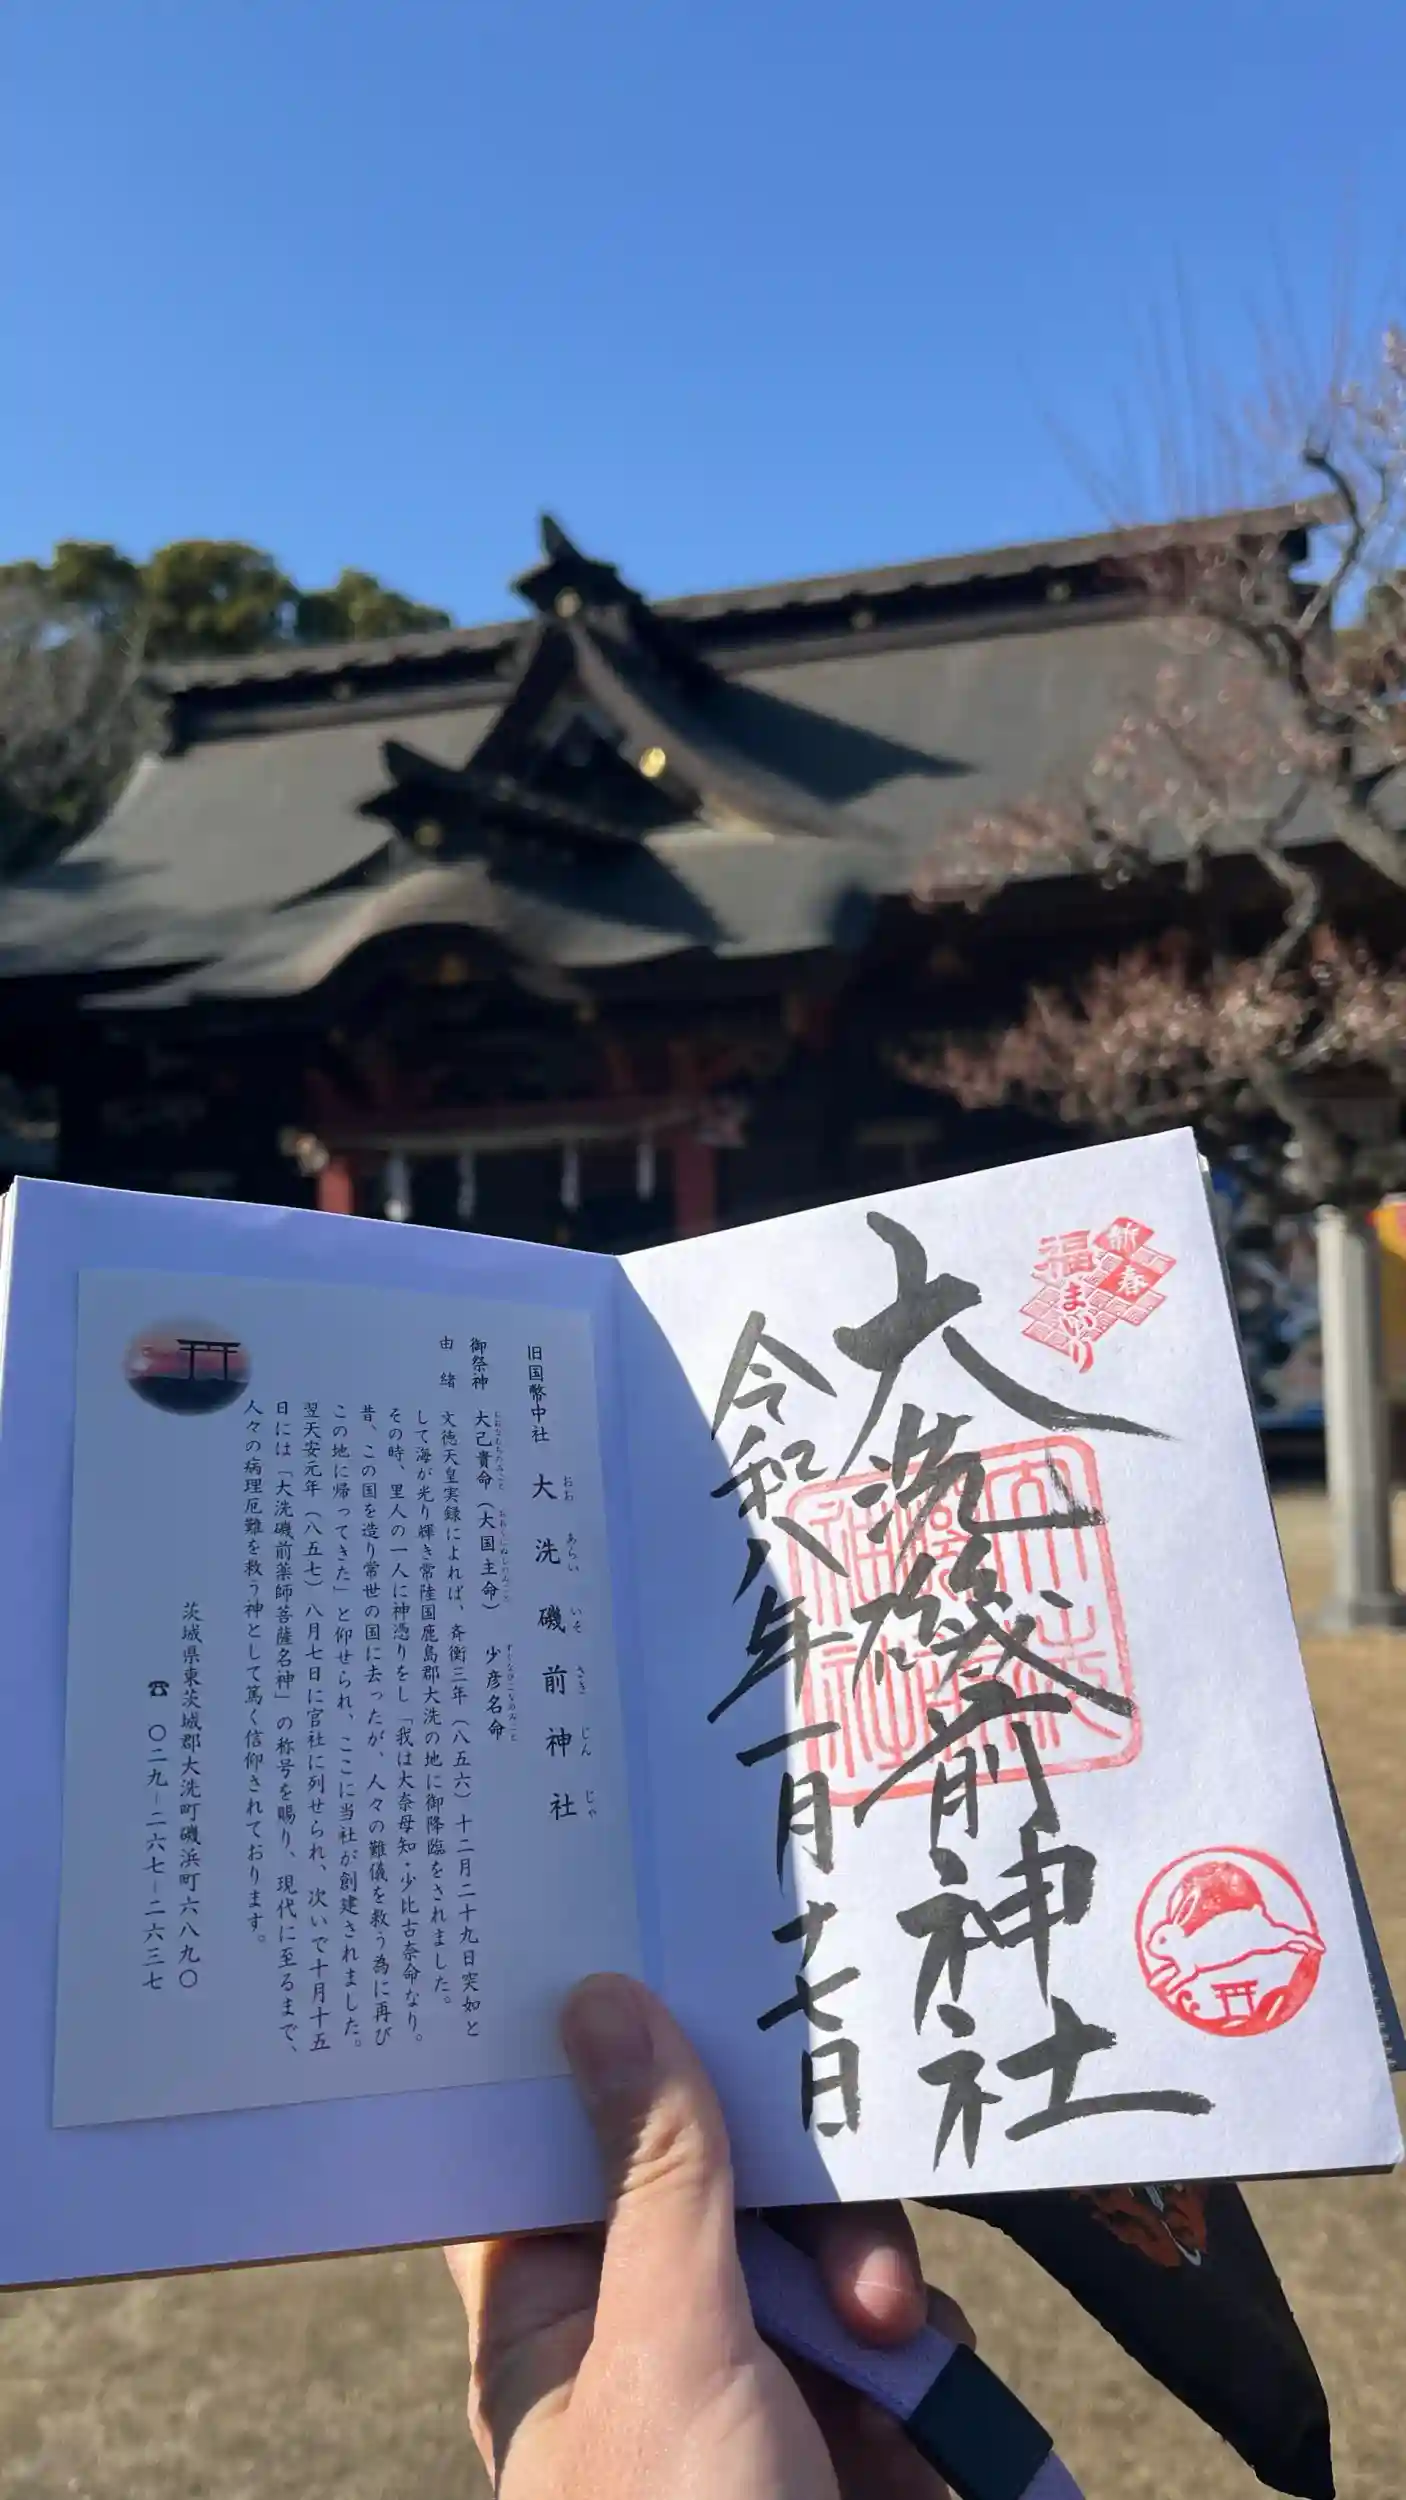 新春
福まいり
大洗磯前神社
令和八年一月十七日
大洗磯前神社
旧国幣中社 大洗磯前神社
おおあらいいそさきじんじゃ
御祭神 大己貴命(大国主命) 少彦名命
おおなむちのみこと おおくにぬしのみこと すくなひこなのみこと
由緒 文徳天皇実録によれば、斉衡三年(八五六)十二月二十九日突如と
して海が光り輝き常陸国鹿島郡大洗の地に御降臨をされました。
その時、里人の一人に神憑りをし「我は大奈母知・少比古奈命なり。
昔、この国を造り常世の国に去ったが、人々の難儀を救う為に再び
この地に帰ってきた」と仰せられ、ここに当社が創建されました。
翌天安元年(八五七)八月七日に官社に列せられ、次いで十月十五
日には「大洗磯前薬師菩薩名神」の称号を賜り、現代に至るまで、
人々の病理厄難を救う神として篤く信仰されております。
茨城県東茨城郡大洗町磯浜町六八九〇
☎ 〇二九-二六七-二六三七